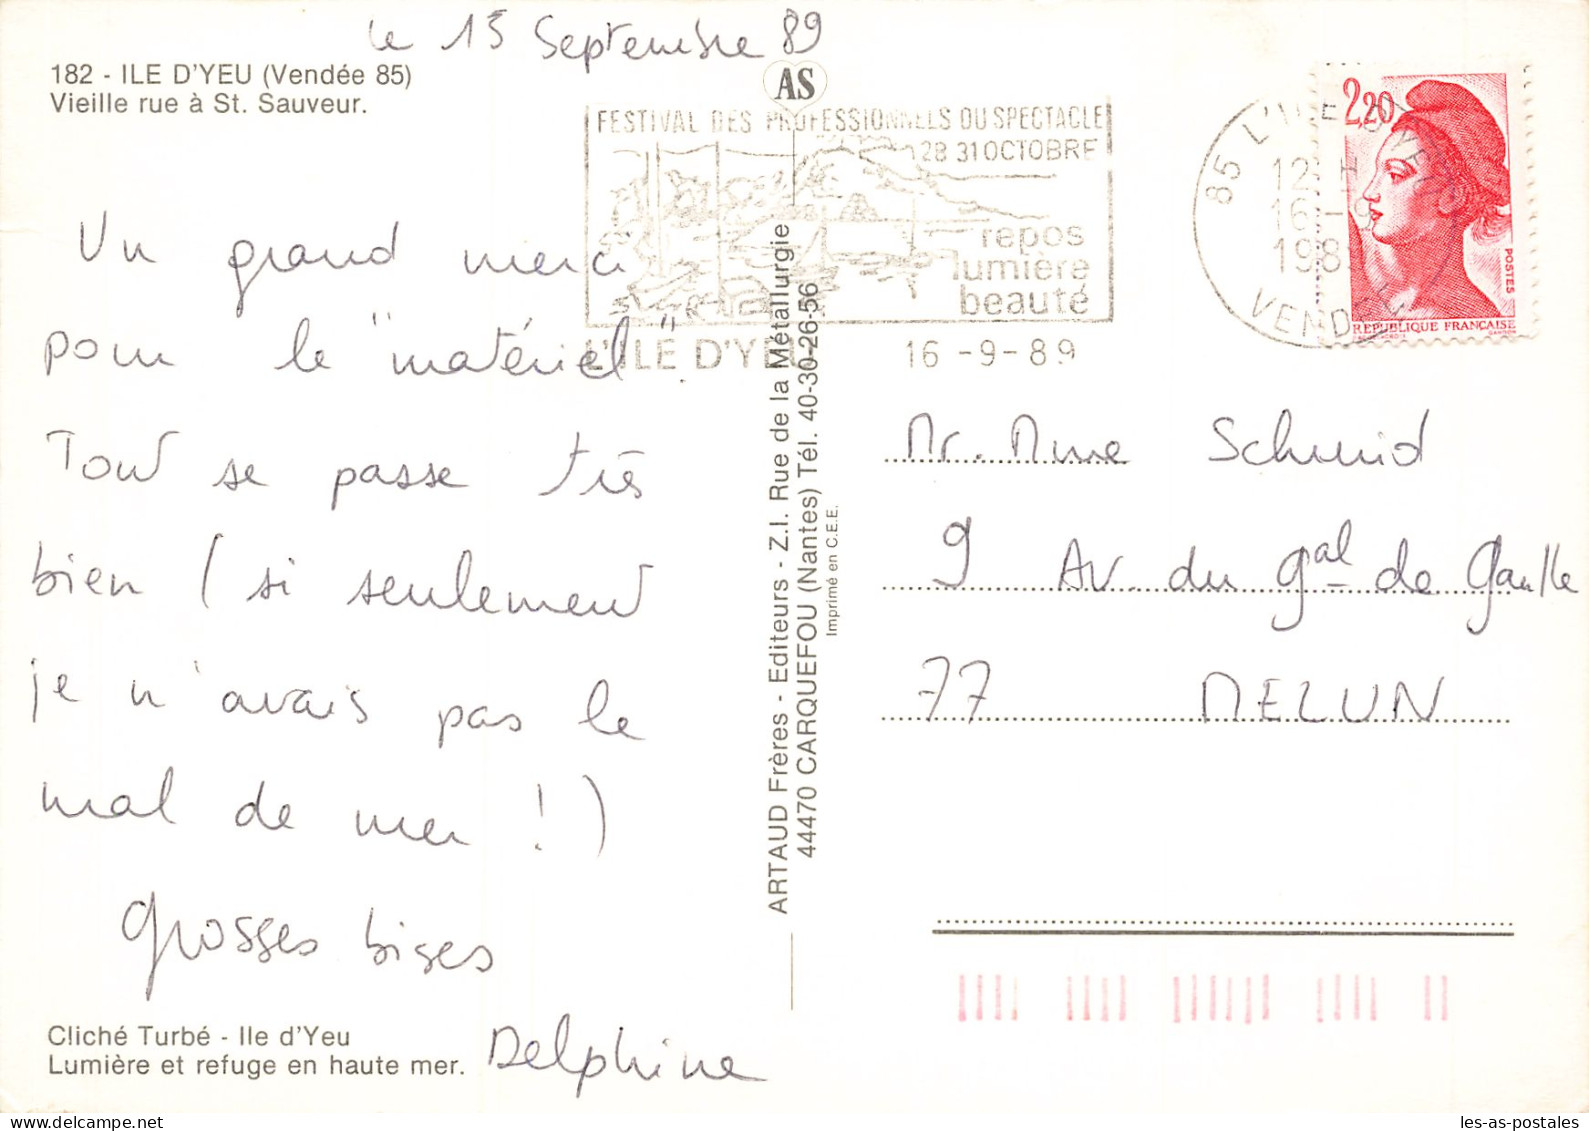 le 15 Septembre 89
182 - ILE D'YEU (Vendée 85)
Vieille rue à St. Sauveur.
AS
FESTIVAL DES PROFESSIONNELS DU SPECTACLE
28 31 OCTOBRE
repos
lumière
beauté
L'ILE D'YEU
16 - 9 - 89
85 L'ILE D'YEU
12 H
16 - 9
198
VENDEE
2,20
POSTES
REPUBLIQUE FRANÇAISE
Un grand merci
pour le "matériel"
Tout se passe très
bien ( si seulement
je n'avais pas le
mal de mer ! )
Grosses bises
Delphine
Cliché Turbé - Ile d'Yeu
Lumière et refuge en haute mer.
ARTAUD Frères - Editeurs - Z.I. Rue de la Métallurgie
44470 CARQUEFOU (Nantes) Tél. 40-30-26-56
Imprimé en C.E.E.
Mr. Mme Schmid
9 Av. du Gal de Gaulle
77 MELUN
les-as-postales